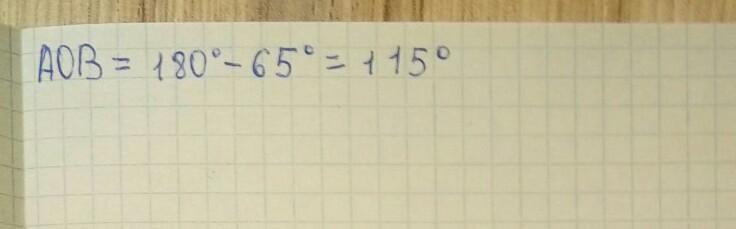 AOB = 180° - 65° = 115°